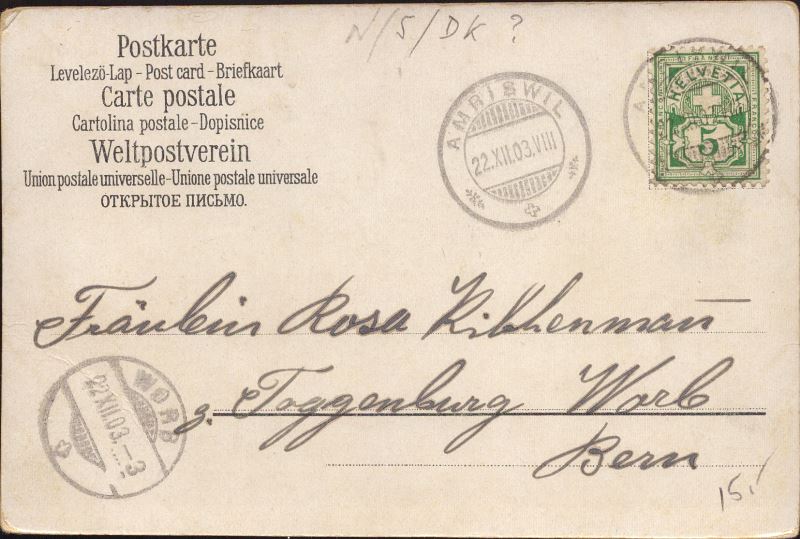 N/S/DK?
Postkarte
Levelezö-Lap – Post card – Briefkaart
Carte postale
Cartolina postale – Dopisnice
Weltpostverein
Union postale universelle – Unione postale universale
ОТКРЫТОЕ ПИСЬМО.
AMRISWIL
22.XII.03.VIII
HELVETIA
5
Fräulein Rosa
z. Toggenburg Worb
Bern
WORB
22.XII.03.–3
15.-